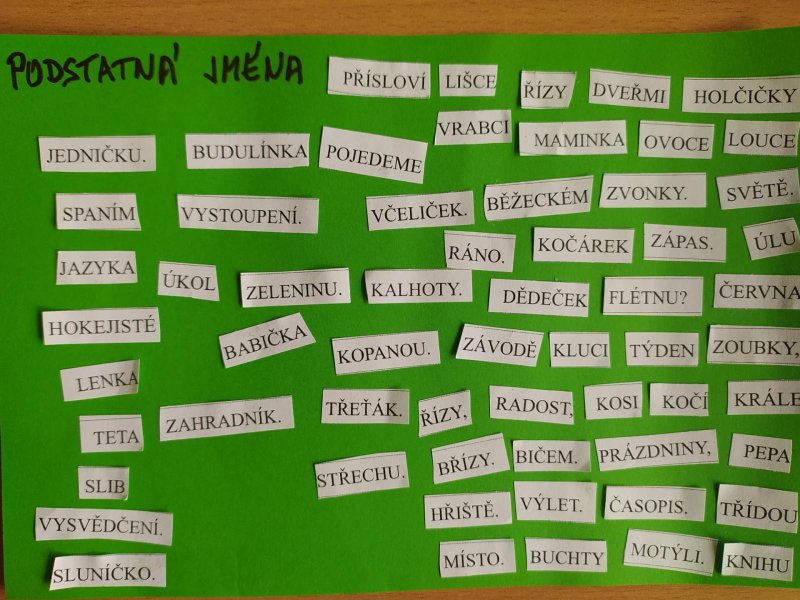 PODSTATNÁ JMÉNA
PŘÍSLOVÍ LIŠCE ŘÍZY DVEŘMI HOLČIČKY
JEDNIČKU. BUDULÍNKA POJEDEME VRABCI MAMINKA OVOCE LOUCE
SPANÍM VYSTOUPENÍ. VČELIČEK. BĚŽECKÉM ZVONKY. SVĚTĚ.
RÁNO. KOČÁREK ZÁPAS. ÚLU
JAZYKA ÚKOL ZELENINU. KALHOTY. DĚDEČEK FLÉTNU? ČERVNA
HOKEJISTÉ BABIČKA KOPANOU. ZÁVODĚ KLUCI TÝDEN ZOUBKY,
LENKA ZAHRADNÍK. TŘEŤÁK. ŘÍZY, RADOST, KOSI KOČÍ KRÁLE
TETA STŘECHU. BŘÍZY. BIČEM. PRÁZDNINY, PEPA
SLIB HŘIŠTĚ. VÝLET. ČASOPIS. TŘÍDOU
VYSVĚDČENÍ.
SLUNÍČKO. MÍSTO. BUCHTY MOTÝLI. KNIHU